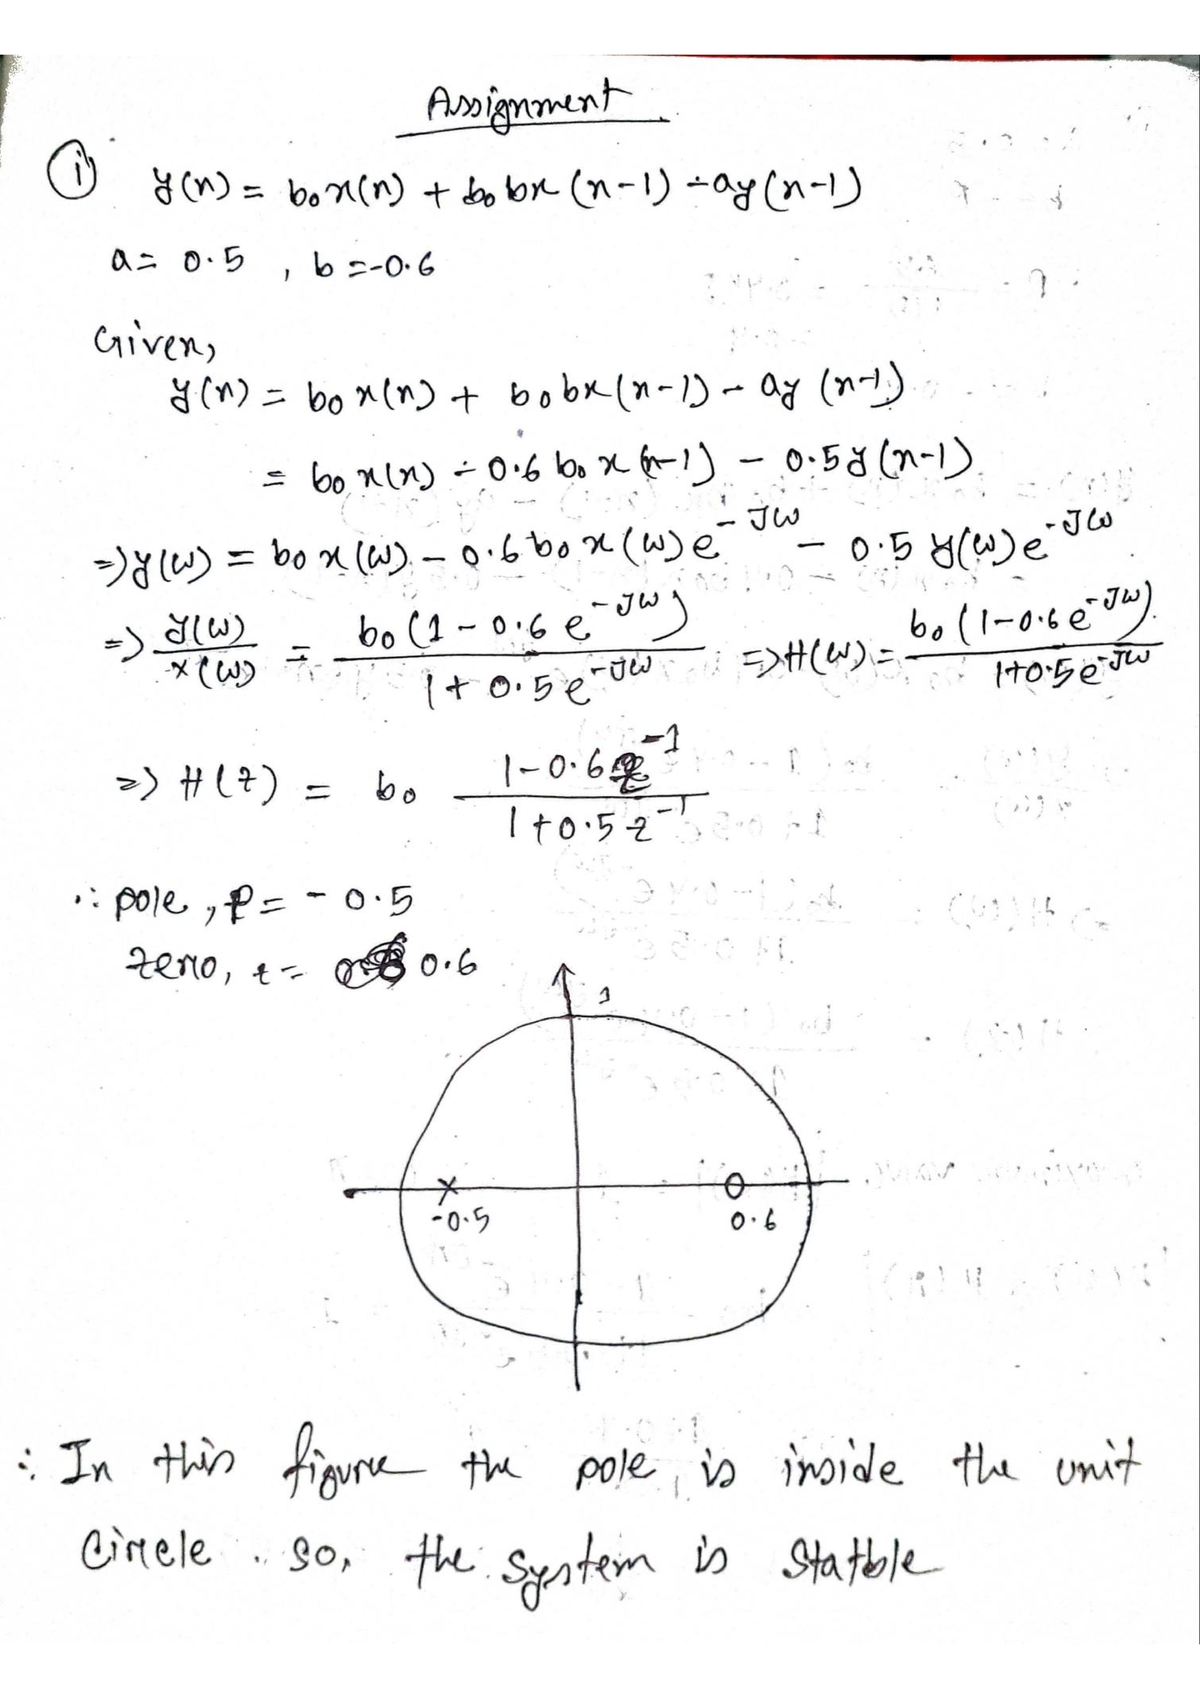 Assignment
① y(n) = b₀x(n) + b₀bx(n-1) - ay(n-1)
a = 0.5 , b = -0.6
Given,
y(n) = b₀x(n) + b₀bx(n-1) - ay(n-1)
= b₀x(n) - 0.6 b₀x(n-1) - 0.5y(n-1)
=> y(ω) = b₀x(ω) - 0.6 b₀x(ω)e^-Jω - 0.5 y(ω)e^-Jω
=> y(ω)/x(ω) = b₀(1 - 0.6 e^-Jω) / 1 + 0.5e^-Jω => H(ω) = b₀(1-0.6e^-Jω) / 1+0.5e^-Jω
=> H(z) = b₀ 1-0.6z^-1 / 1+0.5z^-1
∴ pole, P = -0.5
zero, z = 0.6
1
-0.5 0.6
∴ In this figure the pole is inside the unit
Circle. So, the system is Statble